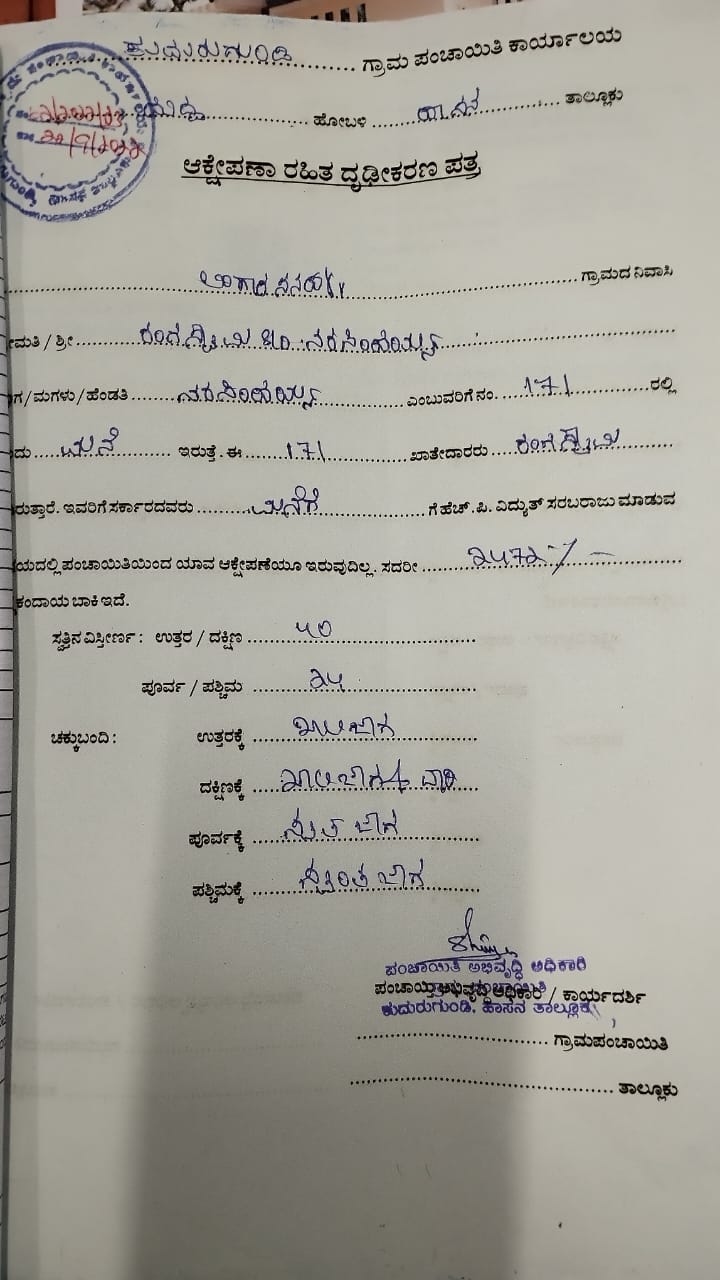 ಕುದುರುಗುಂಡಿ ........ ಗ್ರಾಮ ಪಂಚಾಯಿತಿ ಕಾರ್ಯಾಲಯ
........ ಹೋಬಳಿ ........ ಹಾಸನ ........ ತಾಲ್ಲೂಕು
ಆಕ್ಷೇಪಣಾ ರಹಿತ ದೃಢೀಕರಣ ಪತ್ರ
........ ಗ್ರಾಮದ ನಿವಾಸಿ
ಮತಿ / ಶ್ರೀ ........ ರಂಗಸ್ವಾಮಿ ಬಿನ್ ನರಸಿಂಹಯ್ಯ ........
ಗ/ಮಗಳು/ಹೆಂಡತಿ ........ ನರಸಿಂಹಯ್ಯ ........ ಎಂಬುವರಿಗೆ ನಂ. 171 ........ ರಲ್ಲಿ
ದು ..... ಮನೆ ........ ಇರುತ್ತೆ. ಈ ..... 171 ........ ಖಾತೇದಾರರು ..... ರಂಗಸ್ವಾಮಿ ........
ರುತ್ತಾರೆ. ಇವರಿಗೆ ಸರ್ಕಾರದವರು ........ ಮನೆಗೆ ........ ಗೆ ಹೆಚ್.ಪಿ. ವಿದ್ಯುತ್ ಸರಬರಾಜು ಮಾಡುವ
ಯದಲ್ಲಿ ಪಂಚಾಯಿತಿಯಿಂದ ಯಾವ ಆಕ್ಷೇಪಣೆಯೂ ಇರುವುದಿಲ್ಲ. ಸದರೀ ........
ಕಂದಾಯ ಬಾಕಿ ಇದೆ.
ಸ್ವತ್ತಿನ ವಿಸ್ತೀರ್ಣ : ಉತ್ತರ / ದಕ್ಷಿಣ ........ ೪೦ ........
ಪೂರ್ವ / ಪಶ್ಚಿಮ ........ ೨೪ ........
ಚಕ್ಕುಬಂದಿ : ಉತ್ತರಕ್ಕೆ ........ ಖಾಲಿ ಜಾಗ ........
ದಕ್ಷಿಣಕ್ಕೆ ..... ಖಾಲಿ ಜಾಗ ........
ಪೂರ್ವಕ್ಕೆ ........ ಜಾಗ ........
ಪಶ್ಚಿಮಕ್ಕೆ ........ ಸ್ವಂತ ಜಾಗ ........
ಪಂಚಾಯಿತಿ ಅಭಿವೃದ್ಧಿ ಅಧಿಕಾರಿ
ಪಂಚಾಯ್ತಿ ಅಭಿವೃದ್ಧಿ ಅಧಿಕಾರಿ / ಕಾರ್ಯದರ್ಶಿ
ಕುದುರುಗುಂಡಿ, ಹಾಸನ ತಾಲ್ಲೂಕು
........ ಗ್ರಾಮಪಂಚಾಯಿತಿ
........ ತಾಲ್ಲೂಕು